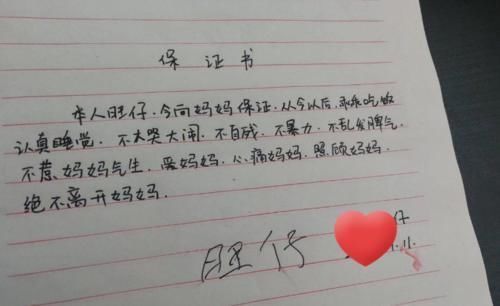 保证书
本人旺仔,今向妈妈保证,从今以后,乖乖吃饭
认真睡觉,不大哭大闹,不自残,不暴力,不乱发脾气,
不惹妈妈气生,爱妈妈,心痛妈妈,照顾妈妈,
绝不离开妈妈.
旺仔
仔